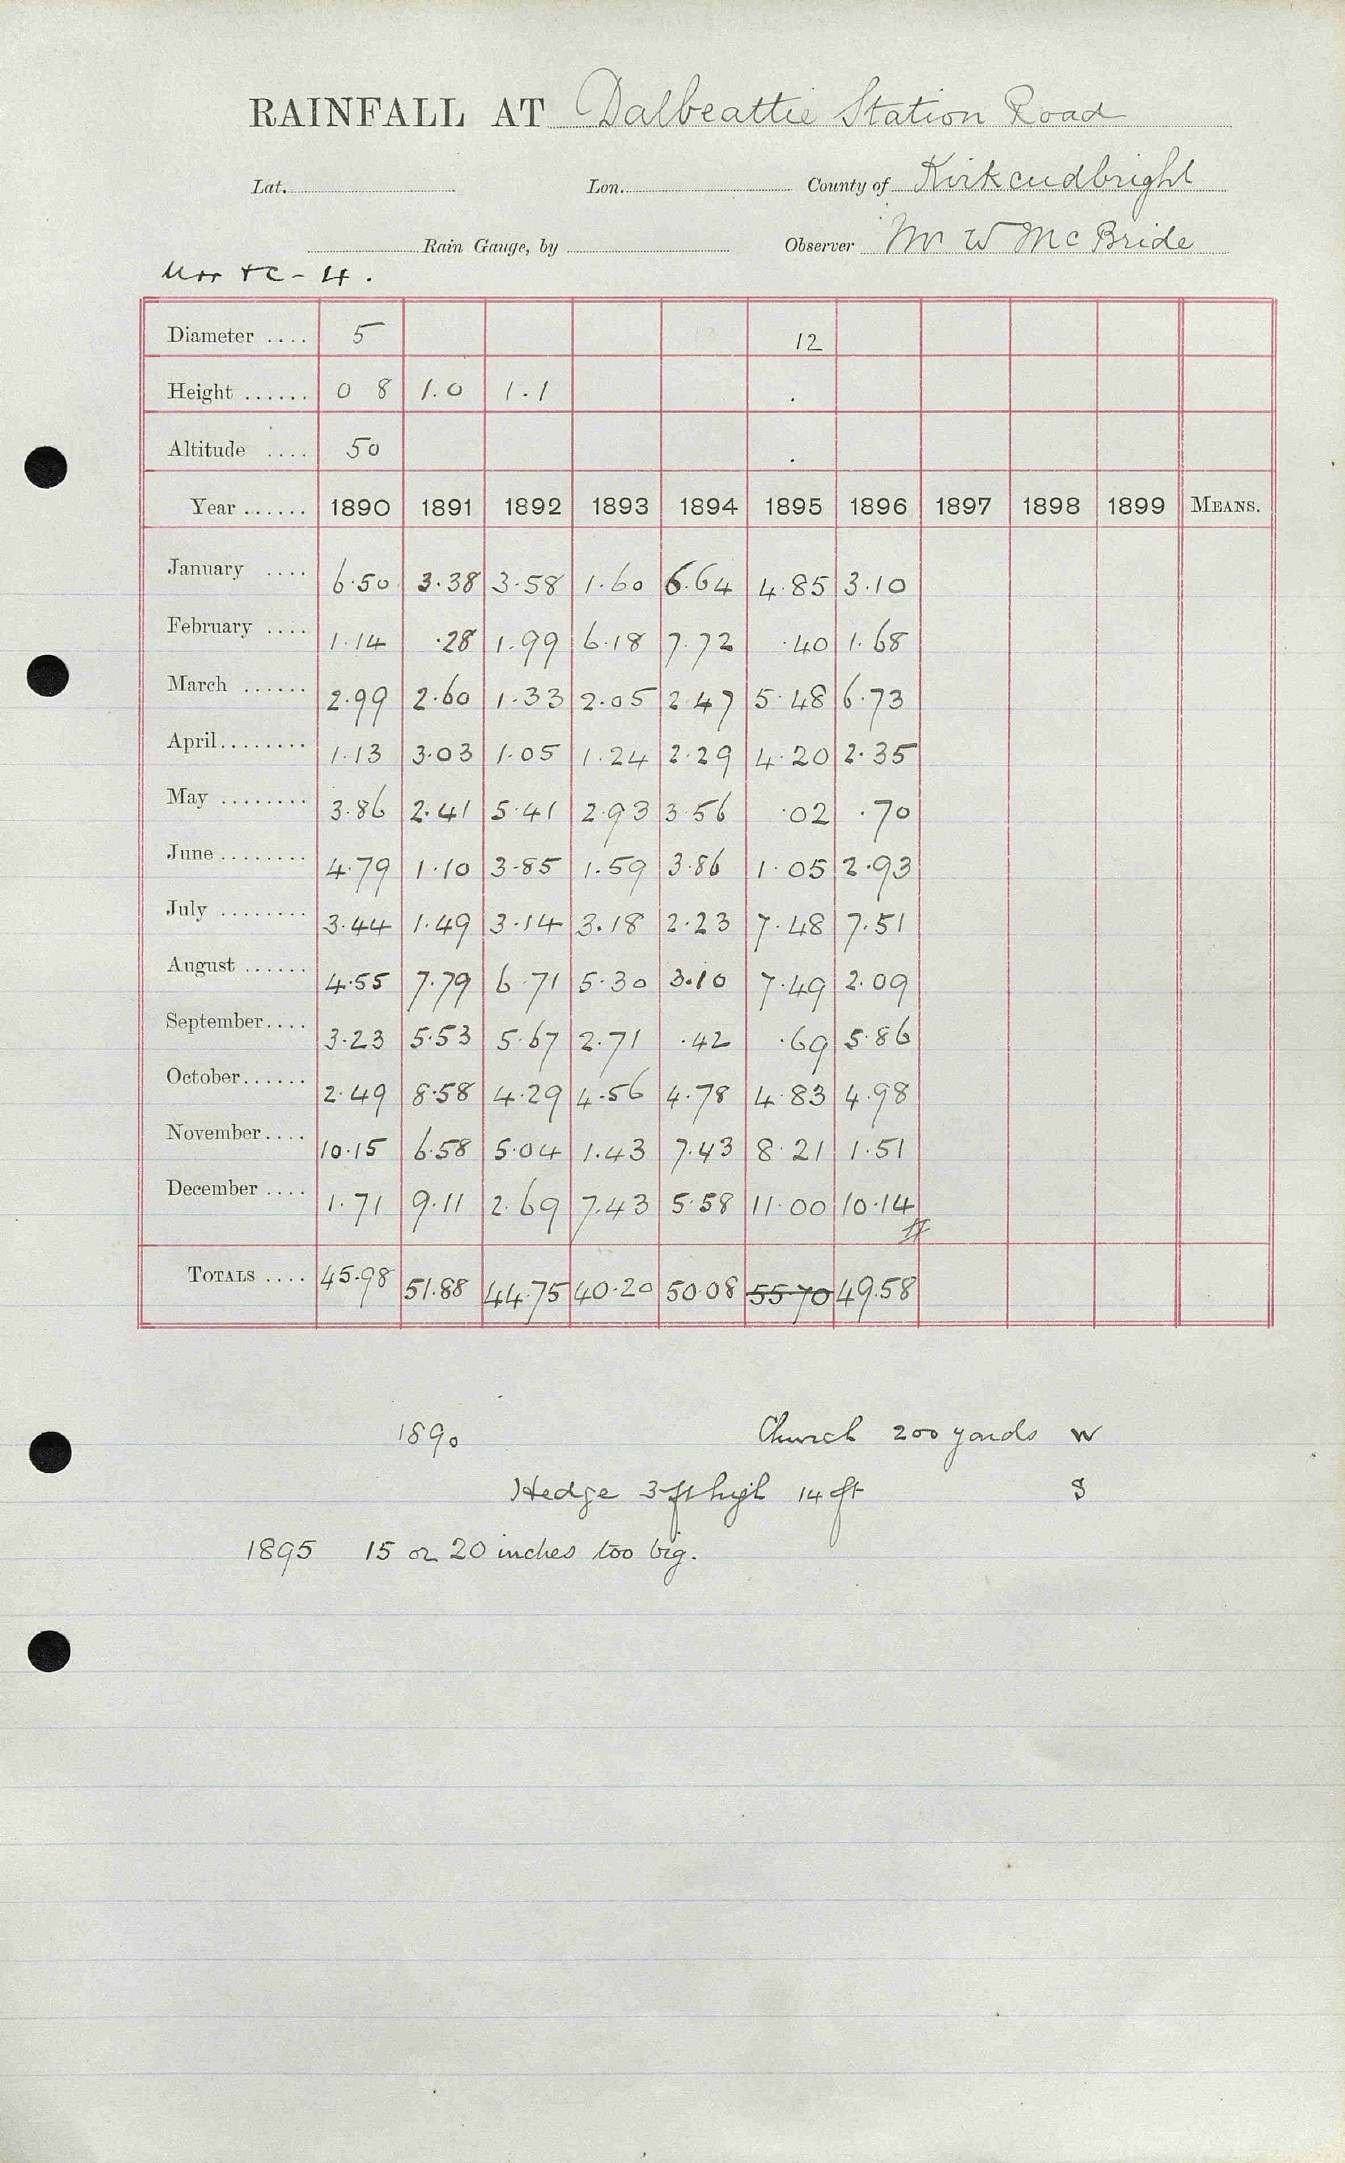 RAINFALL AT Dalbeattie Station Road
Lat. Lon. County of Kirkcudbright
Rain Gauge, by Observer Mr W McBride
- 4.
Diameter .... 5 12
Height ...... 0 8 1.0 1.1
Altitude .... 50
Year ...... 1890 1891 1892 1893 1894 1895 1896 1897 1898 1899 MEANS.
January .... 6.50 3.38 3.58 1.60 6.64 4.85 3.10
February .... 1.14 .28 1.99 6.18 7.72 .40 1.68
March ...... 2.99 2.60 1.33 2.05 2.47 5.48 6.73
April........ 1.13 3.03 1.05 1.24 2.29 4.20 2.35
May ........ 3.86 2.41 5.41 2.93 3.56 .02 .70
June ........ 4.79 1.10 3.85 1.59 3.86 1.05 2.93
July ........ 3.44 1.49 3.14 3.18 2.23 7.48 7.51
August ...... 4.55 7.79 6.71 5.30 3.10 7.49 2.09
September.... 3.23 5.53 5.67 2.71 .42 .69 5.86
October...... 2.49 8.58 4.29 4.56 4.78 4.83 4.98
November.... 10.15 6.58 5.04 1.43 7.43 8.21 1.51
December .... 1.71 9.11 2.69 7.43 5.58 11.00 10.14
TOTALS .... 45.98 51.88 44.75 40.20 50.08 55.70 49.58
1890 Church 200 yards W
Hedge 3 ft high 14 ft S
1895 15 or 20 inches too big.